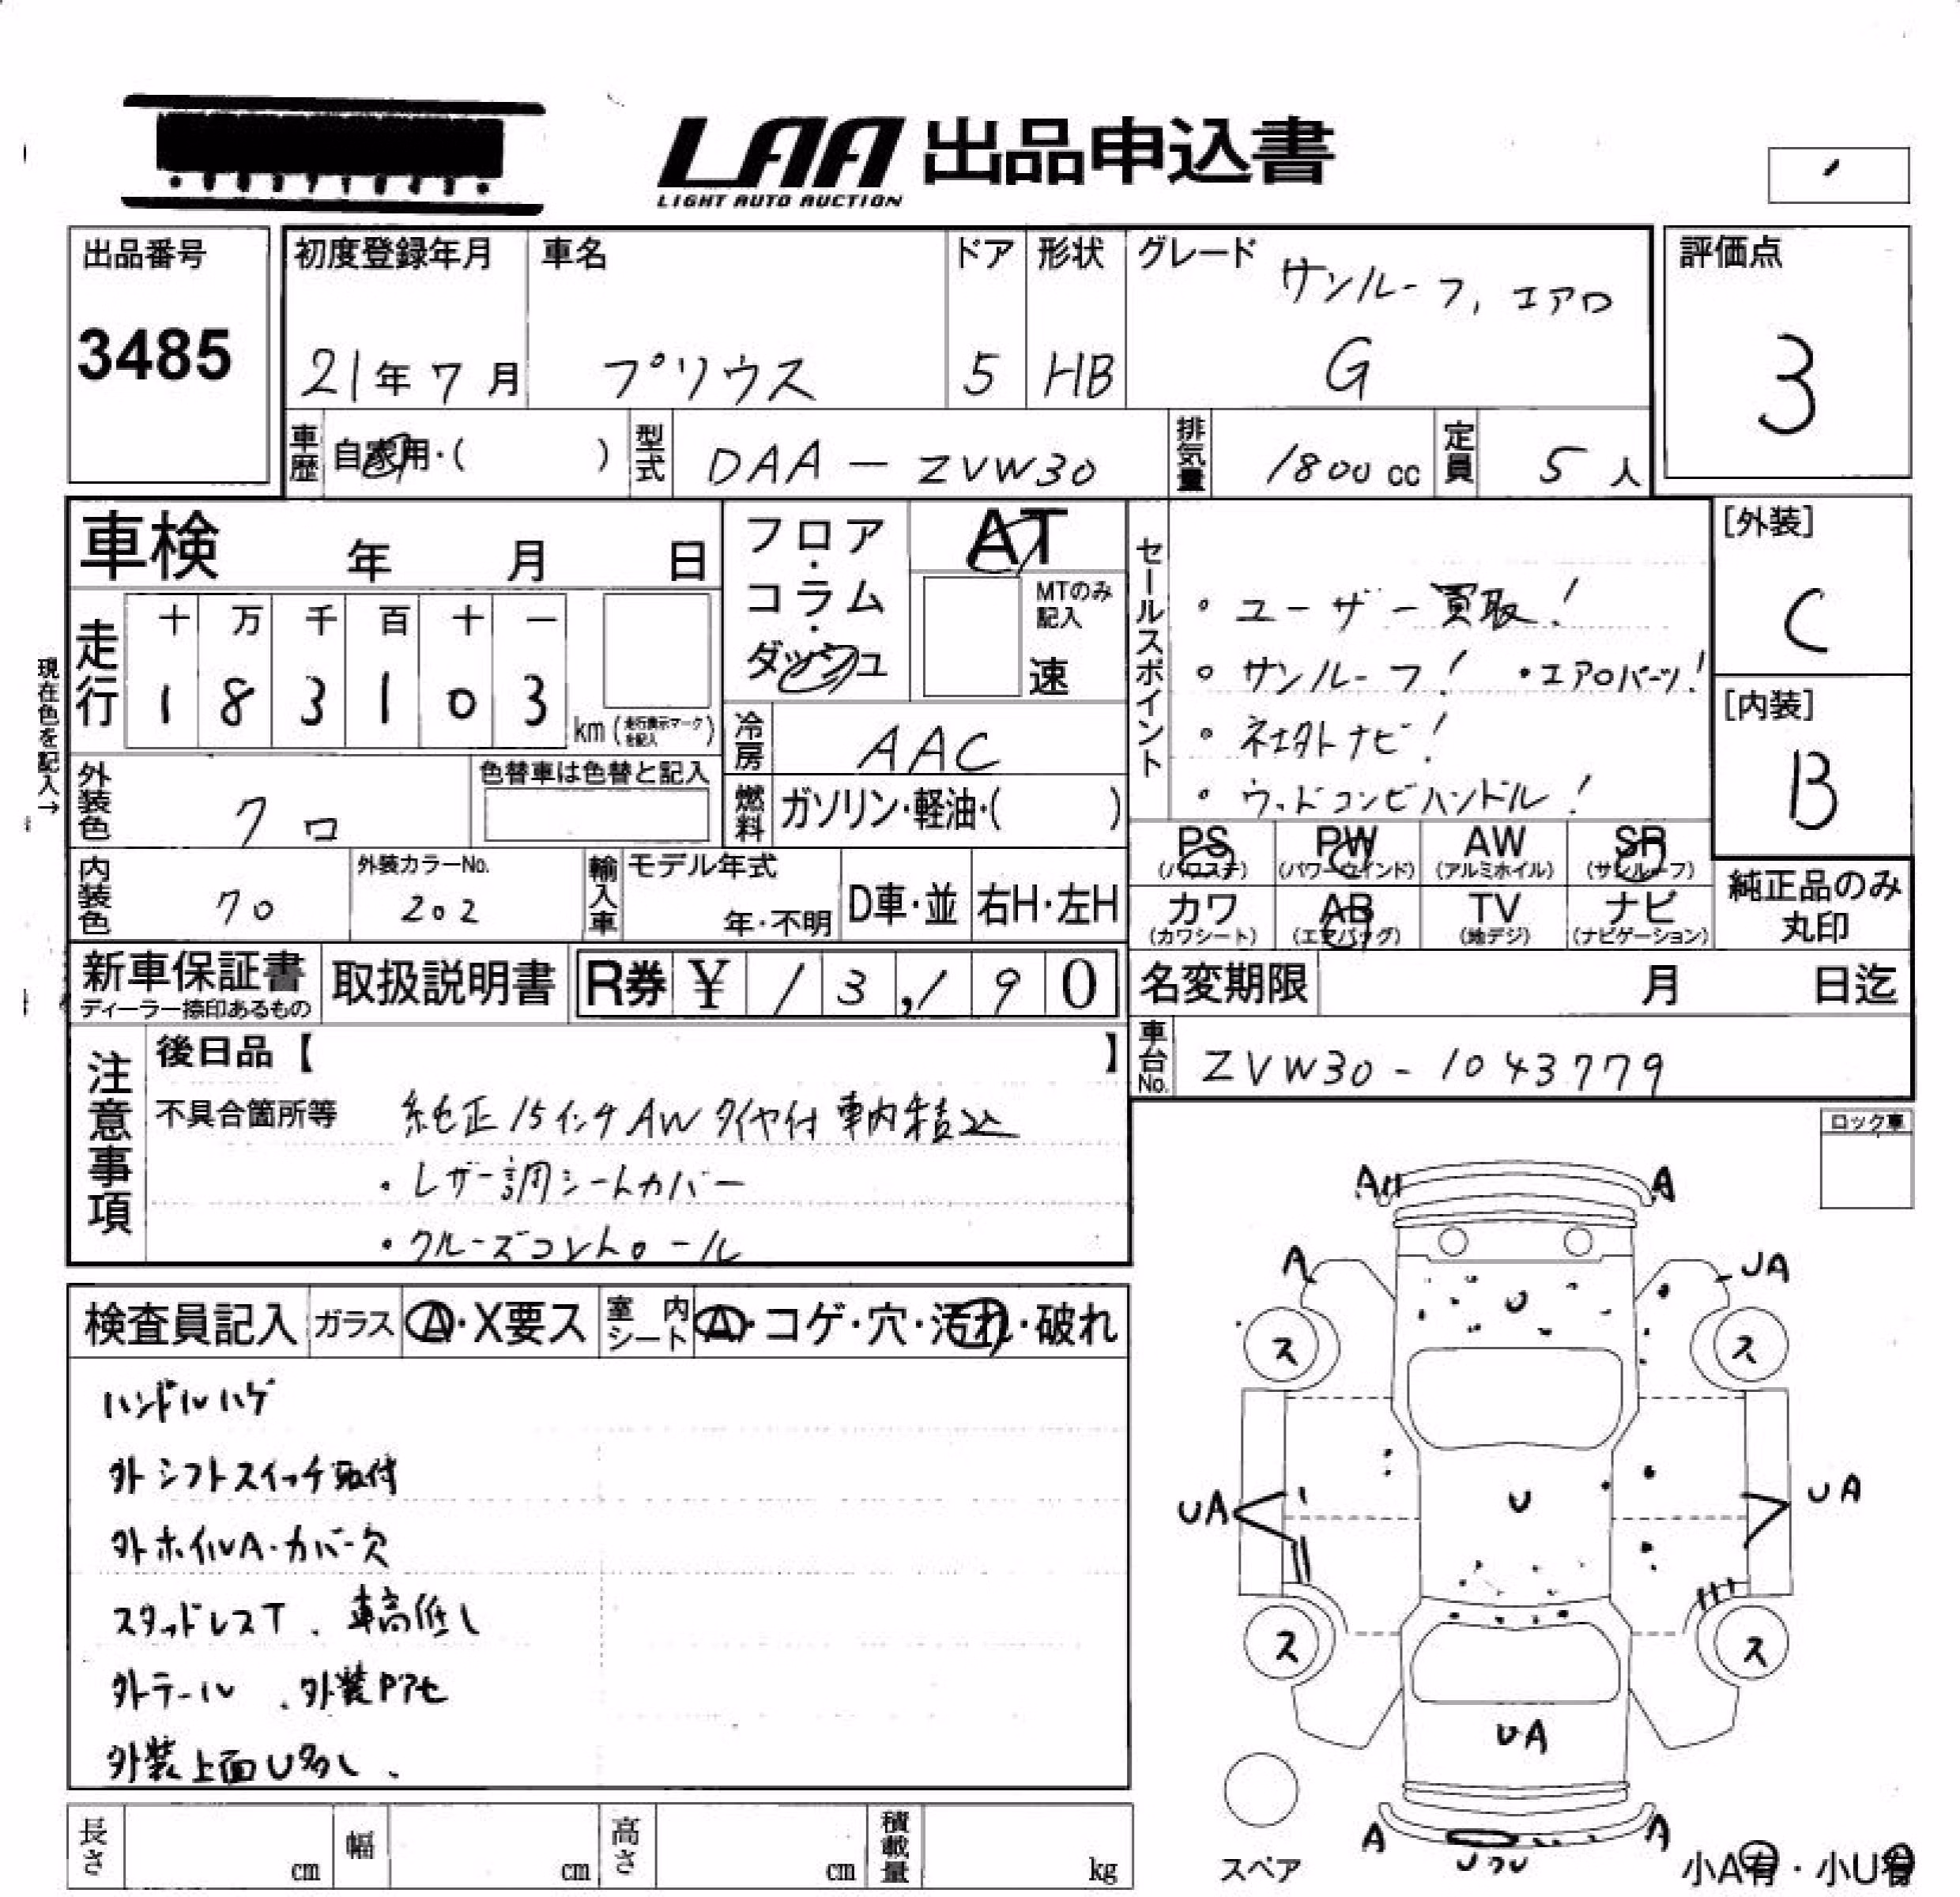 LAA 出品申込書
LIGHT AUTO AUCTION
出品番号
3485
初度登録年月
21年 7月
車名
プリウス
ドア
5
形状
HB
グレード
サンルーフ, エアロ
G
評価点
3
車歴
自家用・( )
型式
DAA - ZVW30
排気量
1800 cc
定員
5 人
車検 年 月 日
フロア・コラム・ダッシュ
AT
MTのみ記入
速
セールスポイント
・ユーザー買取!
・サンルーフ! ・エアロパーツ!
・社外ナビ!
・ウッドコンビハンドル!
[外装]
C
[内装]
B
現在色を記入→
走行
十 万 千 百 十 一
1 8 3 1 0 3
km (走行表示マークを記入)
冷房
AAC
外装色
クロ
色替車は色替と記入
燃料
ガソリン・軽油・( )
PS (パワステ)
PW (パワーウインド)
AW (アルミホイル)
SR (サンルーフ)
カワ (カワシート)
AB (エアバッグ)
TV (地デジ)
ナビ (ナビゲーション)
純正品のみ丸印
内装色
クロ
外装カラーNo.
202
輸入車
モデル年式
年・不明
D車・並
右H・左H
新車保証書
ディーラー捺印あるもの
取扱説明書
R券 ¥ 13,190
名変期限 月 日迄
車台No.
ZVW30-1043779
注意事項
後日品【 】
不具合箇所等
純正15インチAWタイヤ付 車内積込
・レザー調シートカバー
・クルーズコントロール
ロック車
検査員記入
ガラス
A・X要ス
室内シート
A・コゲ・穴・汚れ・破れ
ハンドルハゲ
外シフトスイッチ取付
外ホイルA・カバー欠
スタッドレスT . 車高低し
外テール . 外装Pアセ
外装上面U多し .
A A
A U UA
ス ス
UA U UA
ス ス
UA
A A
スペア
小A有・小U有
長さ cm
幅 cm
高さ cm
積載量 kg